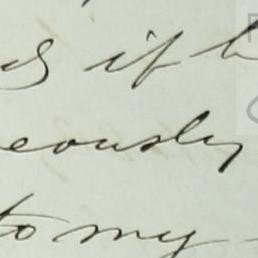 if
eously
to my